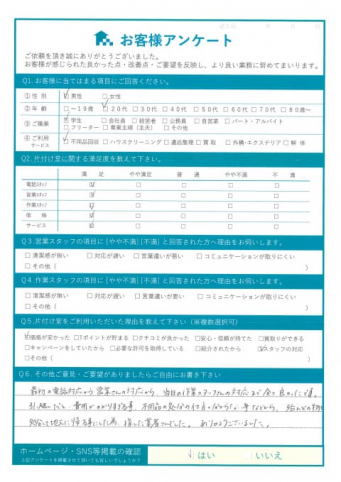 お客様アンケート
ご依頼を頂き誠にありがとうございました。
お客様が感じられた良かった点・改善点・ご要望を反映し、より良い業務に努めてまいります。
Q1. お客様に当てはまる項目にご回答ください。
① 性 別 ☑男性 □女性
② 年 齢 □～19歳 ☑20代 □30代 □40代 □50代 □60代 □70代 □80歳～
③ ご職業 ☑学生 □会社員 □経営者 □公務員 □自営業 □パート・アルバイト
□フリーター □専業主婦（主夫） □その他
④ ご利用サービス ☑不用品回収 □ハウスクリーニング □遺品整理 □買取 □外構・エクステリア □解体
Q2. 片付け堂に関する満足度を教えて下さい。
満 足 やや満足 普 通 やや不満 不 満
電話スタッフ ☑ □ □ □ □
営業スタッフ ☑ □ □ □ □
作業スタッフ ☑ □ □ □ □
価 格 ☑ □ □ □ □
サービス ☑ □ □ □ □
Q3. 営業スタッフの項目に［やや不満］［不満］と回答された方へ理由をお伺いします。
□清潔感が無い □対応が遅い □言葉遣いが悪い □コミュニケーションが取りにくい
□その他（ ）
Q4. 作業スタッフの項目に［やや不満］［不満］と回答された方へ理由をお伺いします。
□清潔感が無い □対応が遅い □言葉遣いが悪い □コミュニケーションが取りにくい
□その他（ ）
Q5. 片付け堂をご利用いただいた理由を教えて下さい（※複数選択可）
☑価格が安かった □Tポイントが貯まる □クチコミが良かった □安心・信頼が持てた □買取りができる
□キャンペーンをしていたから □必要な許可を取得している □紹介されたから ☑スタッフの対応
□その他（ ）
Q6. その他ご意見・ご要望がありましたらご自由にお書き下さい
最初の電話対応から営業さんの対応から、当日の作業のスタッフさんの対応まで全て良かったです。
ありがとうございました。
ホームページ・SNS等掲載の確認
☑はい □いいえ